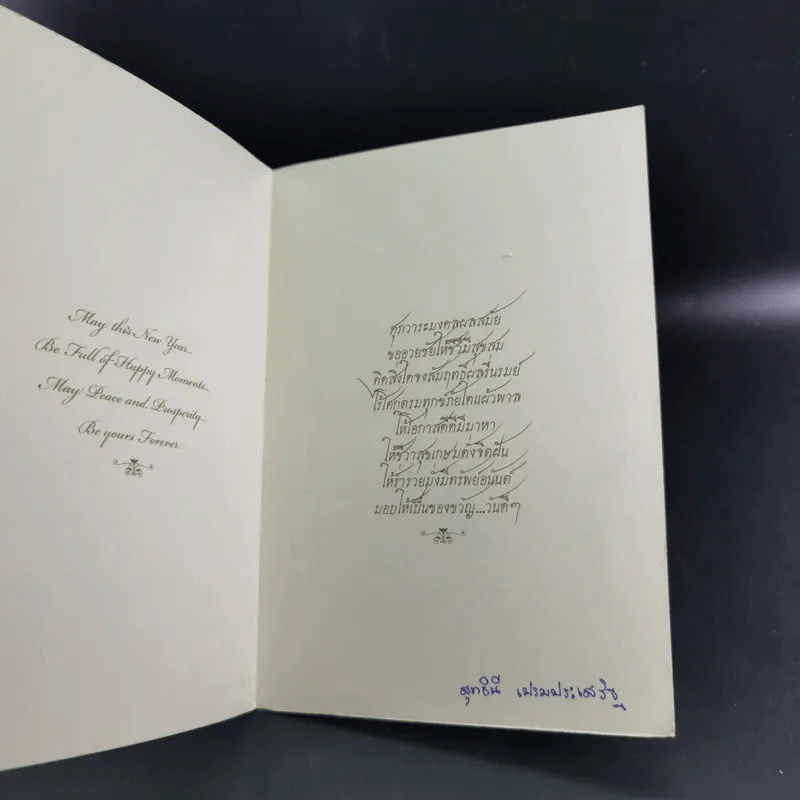 May this New Year
Be Full of Happy Moments
May Peace and Prosperity
Be yours Forever
ศุภวาระมงคลผลสมัย
ขออวยชัยให้ชีวีมีสุขสม
คิดสิ่งใดจงสัมฤทธิ์ผลรื่นรมย์
ไร้โศกตรมทุกข์ภัยใดแผ้วพาล
ให้โอกาสดีดีมีมาหา
ให้ชีวาสุขเกษมดั่งจิตฝัน
ให้ร่ำรวยมั่งมีทรัพย์อนันต์
มอบให้เป็นของขวัญ...วันดีๆ
สุทธินี